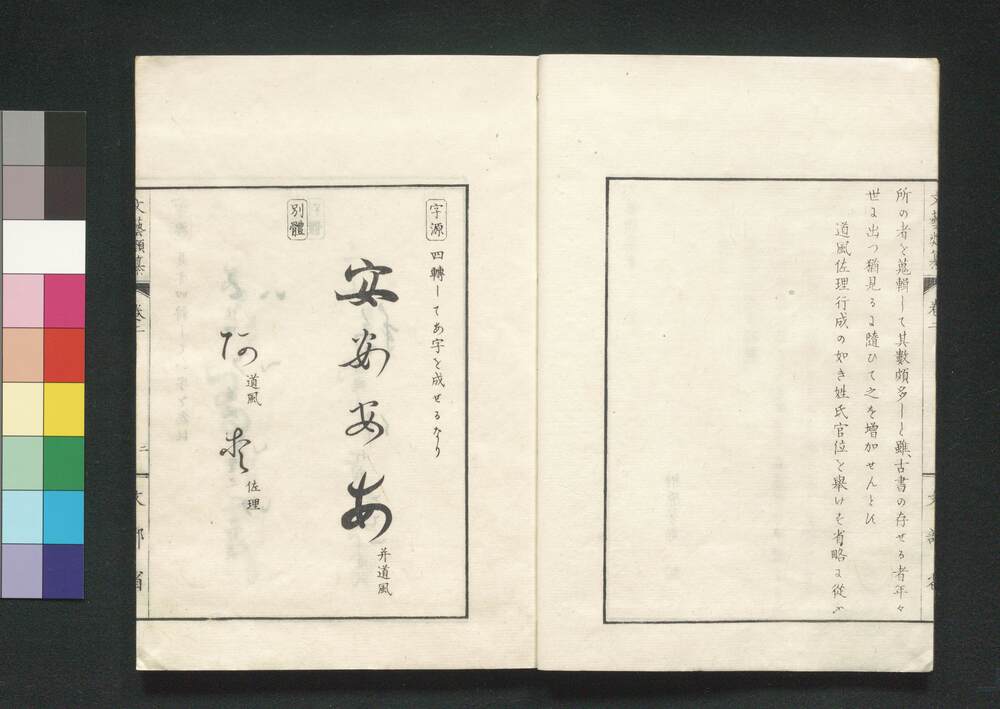 所の者を蒐輯して其數頗多しと雖、古書の存せる者年々
世に出つ猶見るに隨ひて之を增加せんとひ
道風佐理行成の如き姓氏官位を擧けを省略に從ふ
文藝類纂
卷二
文部省
字源
四轉してあ字を成せるなり
安 安 安 あ
并道風
別體
阿 道風
佐理
文藝類纂
卷二
二
文部省